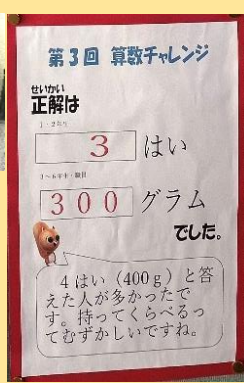 第3回 算数チャレンジ
せいかい
正解は
1・2年生
3 はい
3~6年生・職員
300 グラム
でした。
4はい(400g)と答
えた人が多かったで
す。持ってくらべるっ
てむずかしいですね。